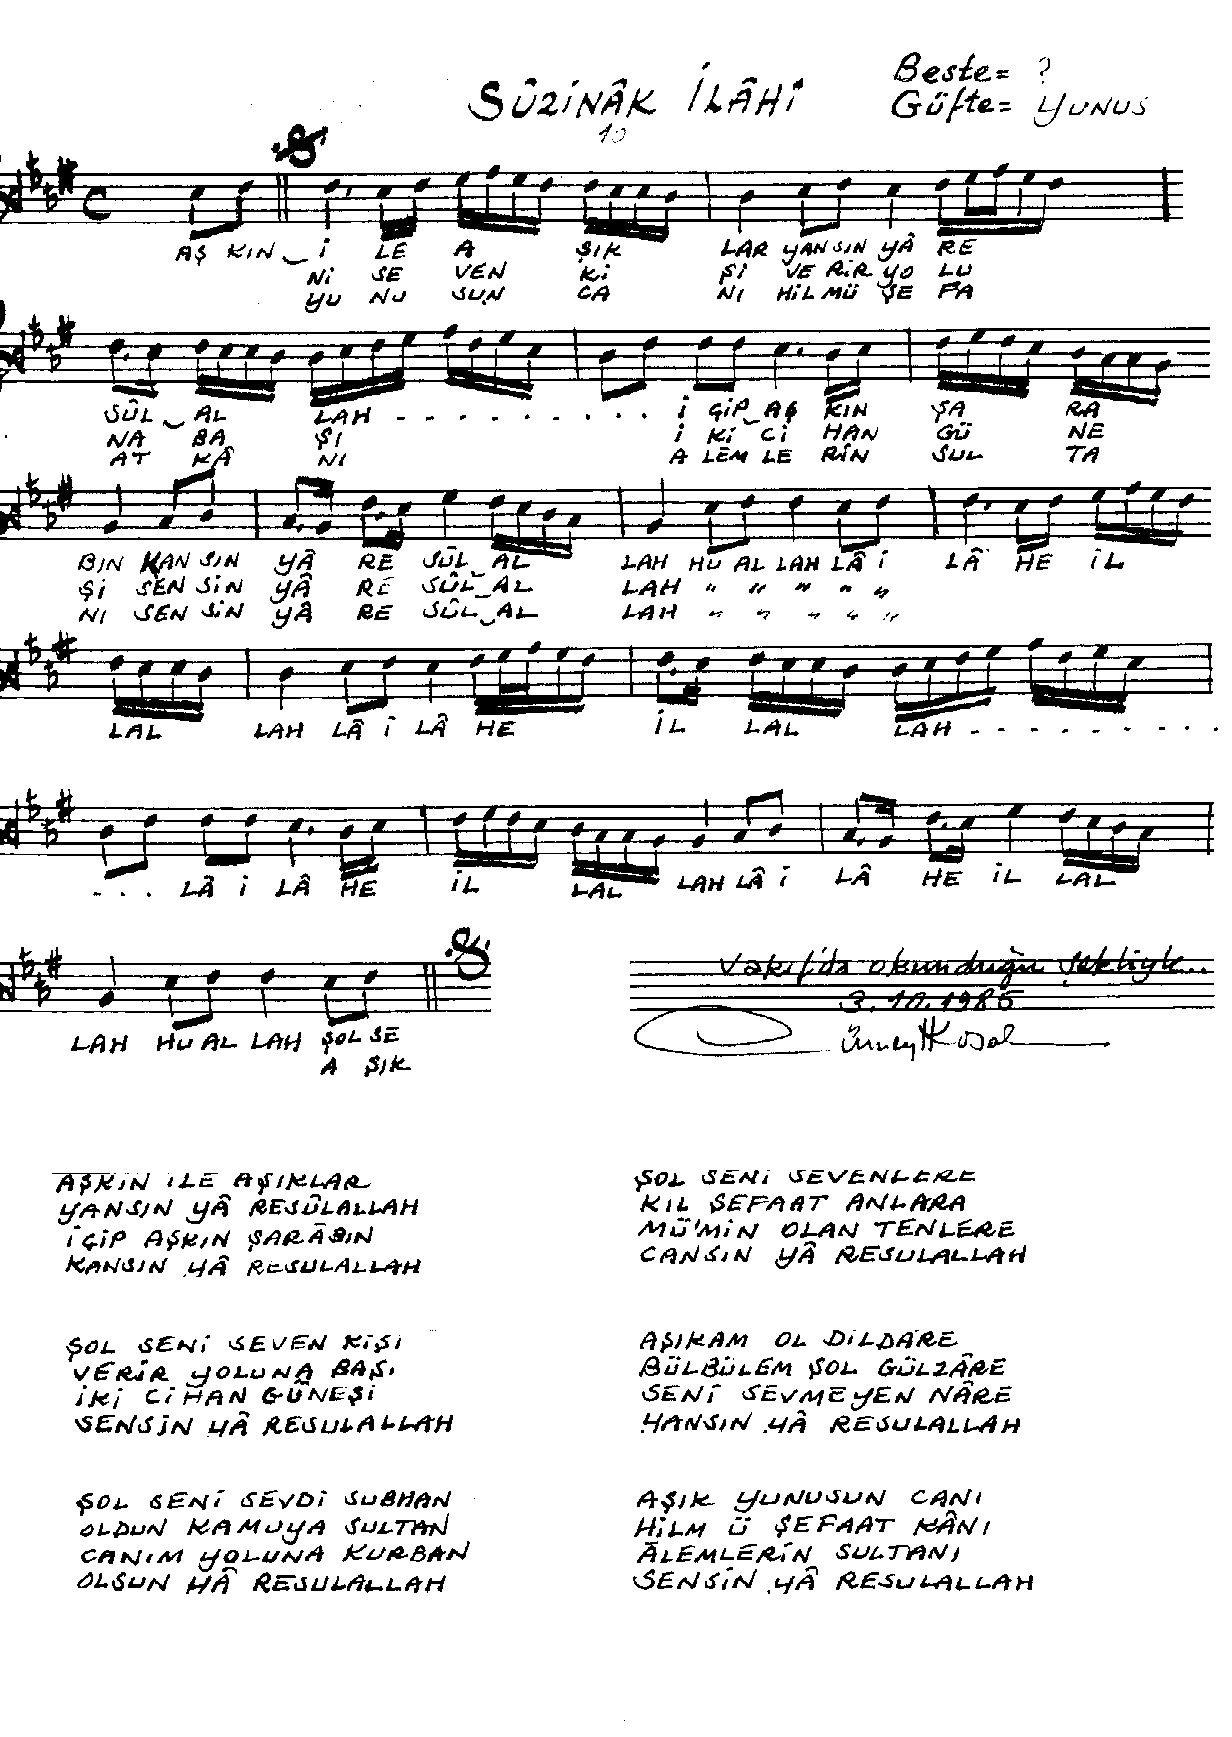 SÛZİNÂK İLÂHİ
10
Beste= ?
Güfte= YUNUS
AŞ KIN İ LE A ŞIK LAR YANSIN YÂ RE
Nİ SE VEN Kİ Şİ VE RİR YO LU
YU NU SUN CA NI HİL MÜ ŞE FA
SÛL AL LAH - - - - - - - - . İ ÇİP AŞ KIN ŞA RA
NA BA ŞI İ Kİ Cİ HAN GÜ NE
AT KÂ NI A LEM LE RİN SUL TA
BIN KAN SIN YÂ RE SÛL AL LAH HU AL LAH LÂ İ LÂ HE İL
Şİ SEN SİN YÂ RE SÛL AL LAH " " " " "
NI SEN SİN YÂ RE SÛL AL LAH " " " " "
LAL LAH LÂ İ LÂ HE İL LAL LAH - - - - - - - - -
. . . LÂ İ LÂ HE İL LAL LAH LÂ İ LÂ HE İL LAL
LAH HU AL LAH ŞOL SE
A ŞIK
Vakıf'da okunduğu şekliyle...
3.10.1985
AŞKIN İLE AŞIKLAR
YANSIN YÂ RESÛLALLAH
İÇİP AŞKIN ŞARÂBIN
KANSIN YÂ RESULALLAH
ŞOL SENİ SEVEN KİŞİ
VERİR YOLUNA BAŞI
İKİ CİHAN GÜNEŞİ
SENSİN YÂ RESULALLAH
ŞOL SENİ SEVDİ SUBHAN
OLDUN KAMUYA SULTAN
CANIM YOLUNA KURBAN
OLSUN YÂ RESULALLAH
ŞOL SENİ SEVENLERE
KIL ŞEFAAT ANLARA
MÜ'MİN OLAN TENLERE
CANSIN YÂ RESULALLAH
AŞIKAM OL DİLDÂRE
BÜLBÜLEM ŞOL GÜLZÂRE
SENİ SEVMEYEN NÂRE
YANSIN YÂ RESULALLAH
AŞIK YUNUSUN CANI
HİLM Ü ŞEFAAT KÂNI
ÂLEMLERİN SULTANI
SENSİN YÂ RESULALLAH